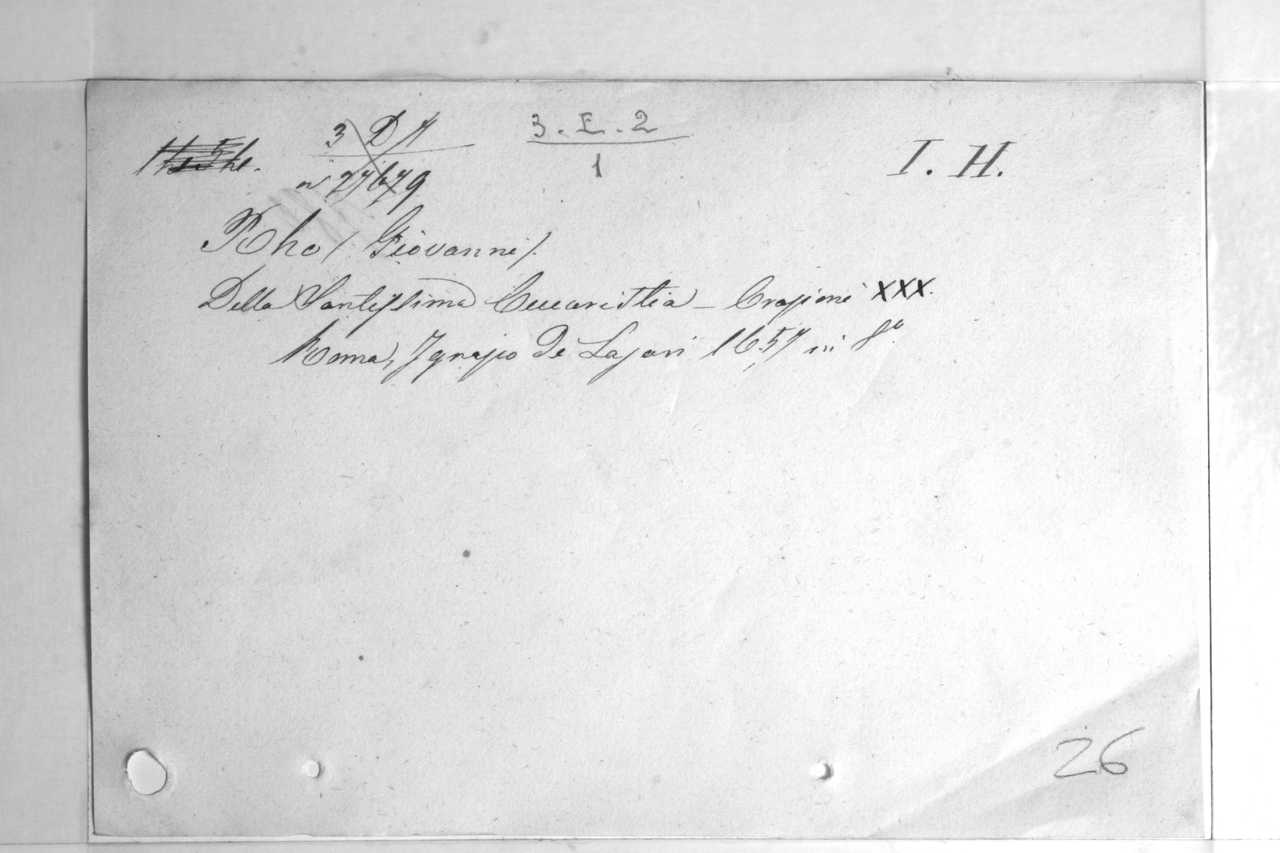 3 D A
3. E. 2
1
I. H.
Rho (Giovanni).
Della Santissima Eucaristia – Orazioni XXX.
Roma, Ignazio De Lazari 1657 in 8º
26